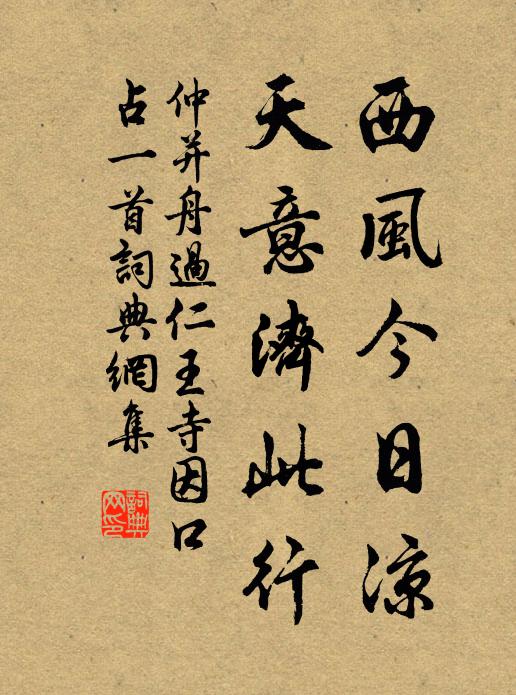 西風今日涼
天意濟此行
仲并舟過仁王寺因口
占一首詞典網集
詞典
網印